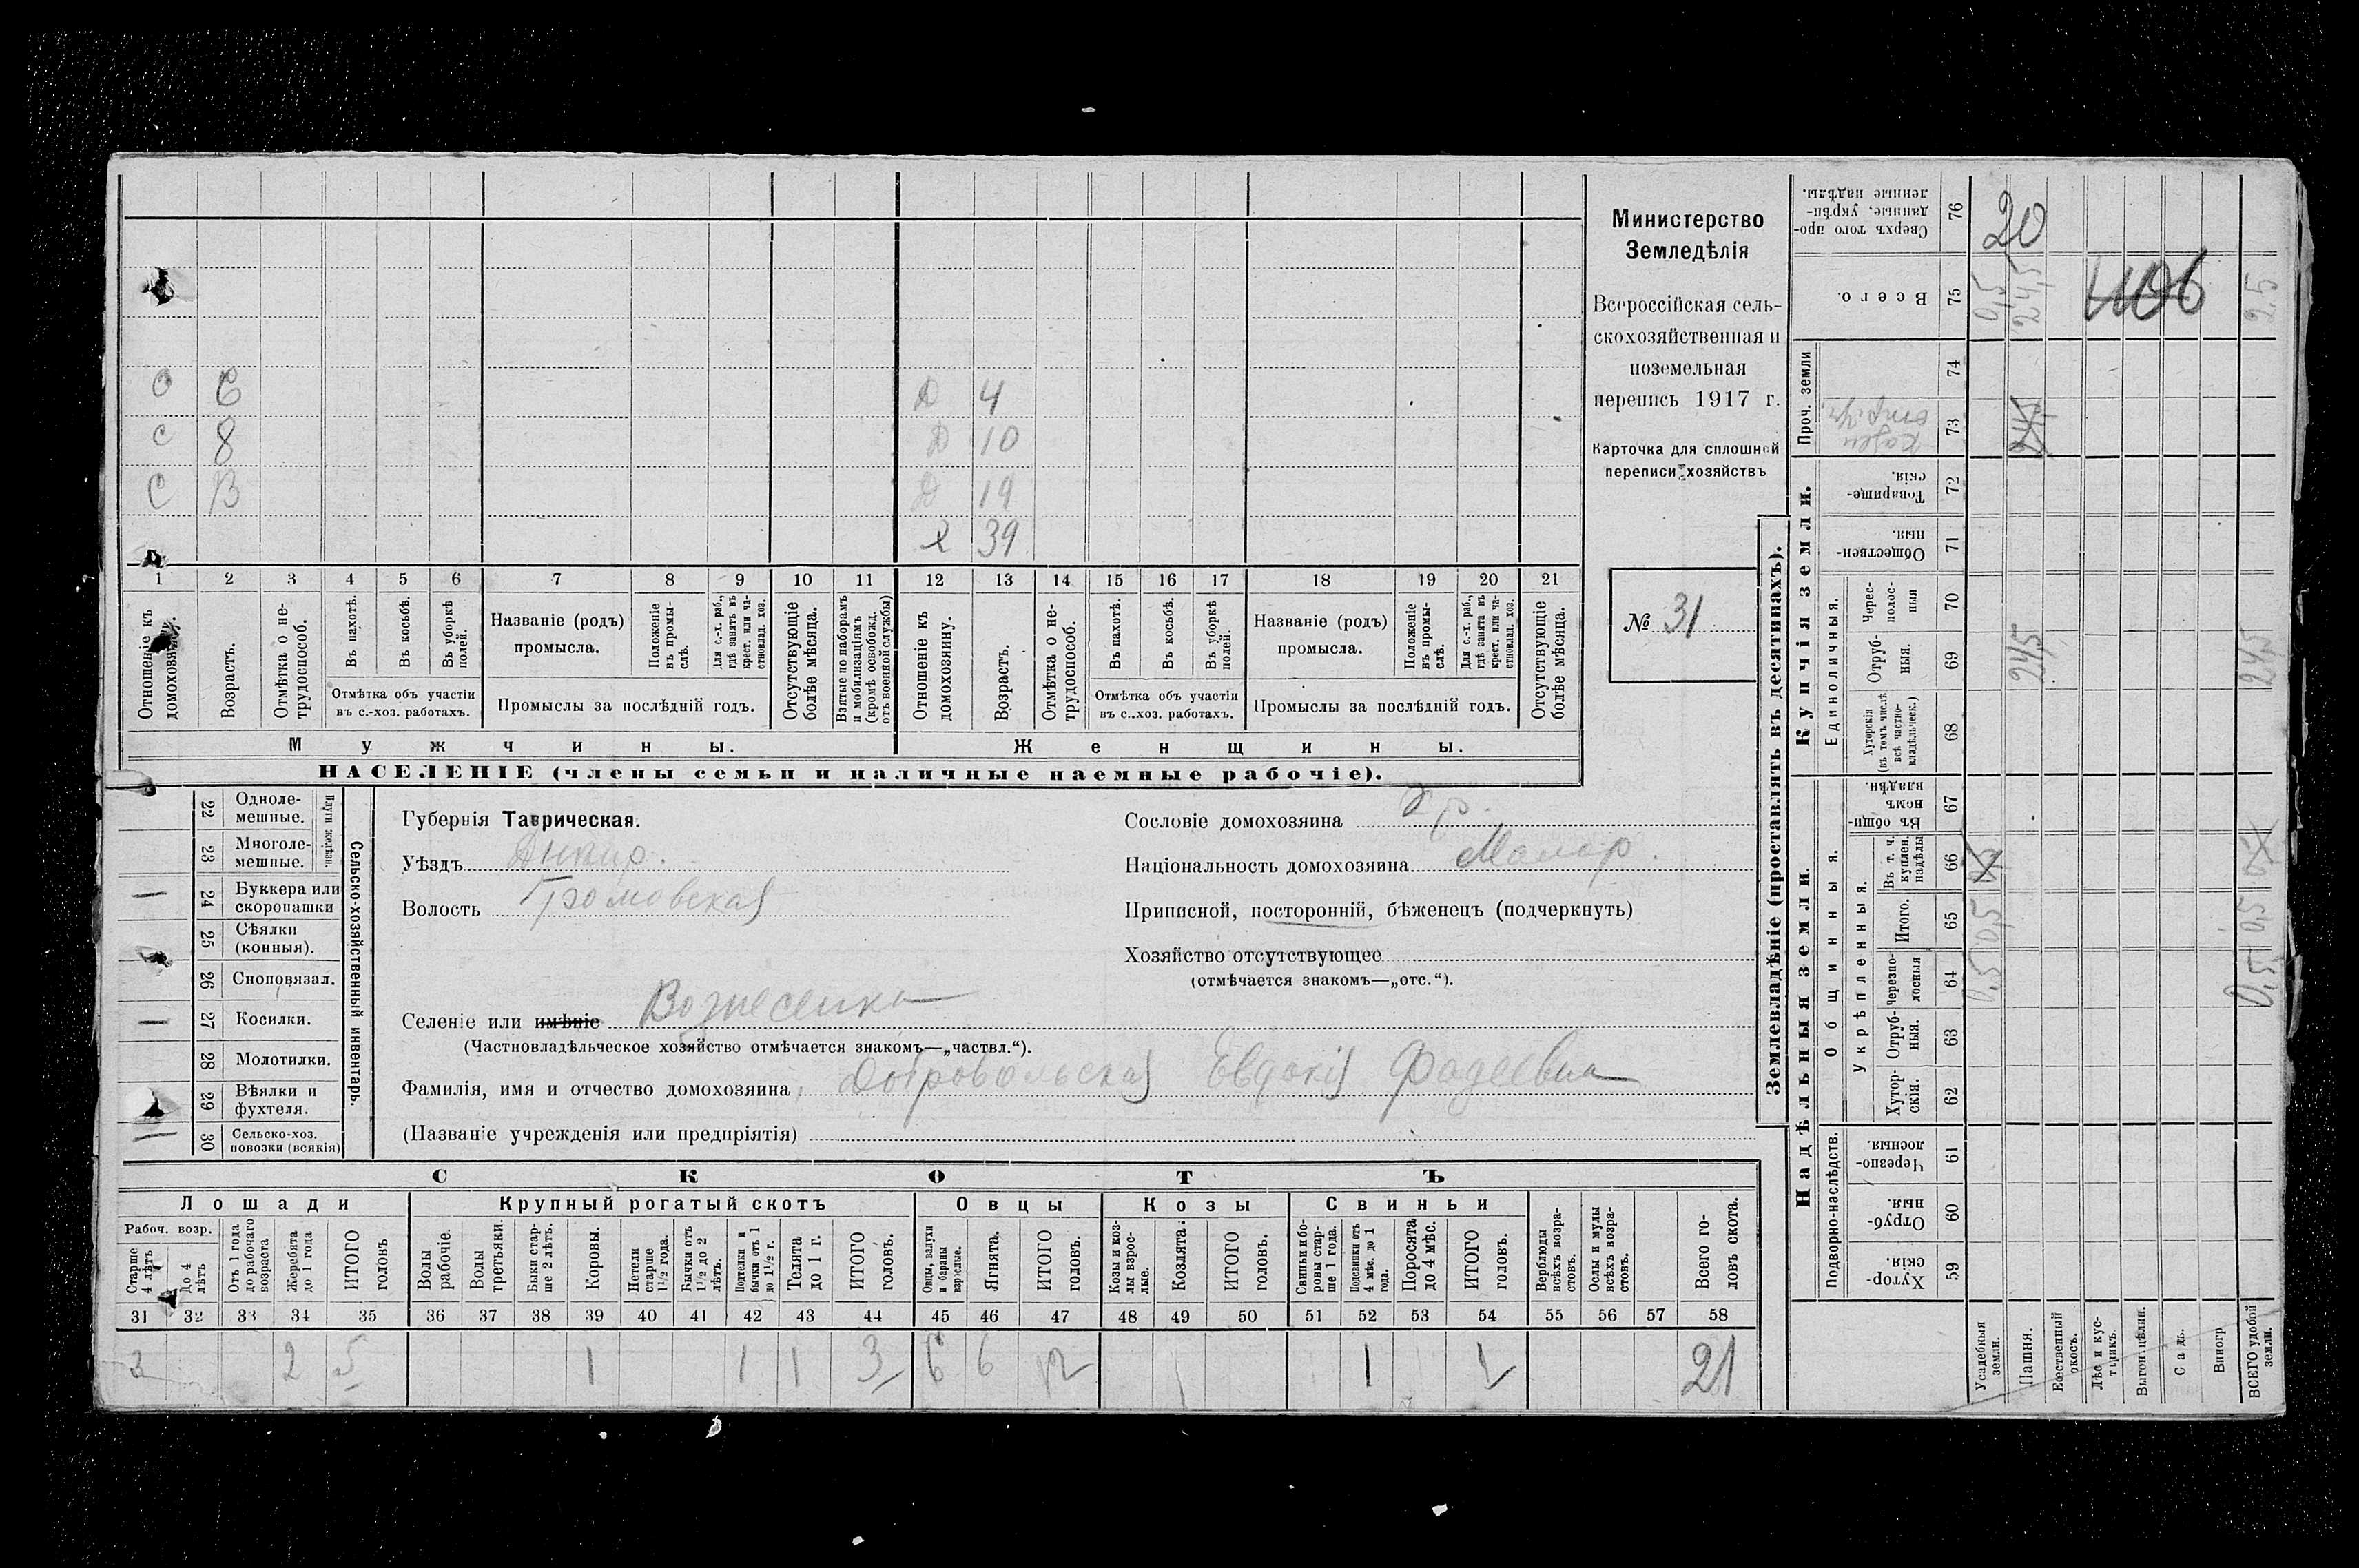 Министерство
Земледѣлія
Всероссійская сель-
скохозяйственная и
поземельная
перепись 1917 г.
Карточка для сплошной
переписи хозяйствъ
№ 31
О 6 Д 4
С 8 Д 10
С Д 19
Х 39
1 2 3 4 5 6 7 8 9 10 11 12 13 14 15 16 17 18 19 20 21
Отношеніе къ домохозяину.
Возрастъ.
Отмѣтка о не-трудоспособ.
Въ пахотѣ.
Въ косьбѣ.
Въ уборкѣ полей.
Отмѣтка объ участіи въ с.-хоз. работахъ.
Названіе (родъ) промысла.
Положеніе въ промы-слѣ.
Для с.-х. раб., гдѣ занятъ въ крест. или ча-стновлад. хоз.
Промыслы за послѣдній годъ.
Отсутствующіе болѣе мѣсяца.
Взятые по наборамъ и мобилизаціямъ (кромѣ освобожд. отъ военной службы)
Отношеніе къ домохозяину.
Возрастъ.
Отмѣтка о не-трудоспособ.
Въ пахотѣ.
Въ косьбѣ.
Въ уборкѣ полей.
Отмѣтка объ участіи въ с..хоз. работахъ.
Названіе (родъ) промысла.
Положеніе въ промы-слѣ.
Для с.-х. раб., гдѣ занята въ крест. или ча-стновлад. хоз.
Промыслы за послѣдній годъ.
Отсутствующіе болѣе мѣсяца.
Мужчины. Женщины.
НАСЕЛЕНІЕ (члены семьи и наличные наемные рабочіе).
Сельско-хозяйственный инвентарь.
Плуги желѣзн.
22 Одноле-мешные.
23 Многоле-мешные.
24 Буккера или скоропашки
25 Сѣялки (конныя).
26 Сноповязал.
27 Косилки.
28 Молотилки.
29 Вѣялки и фухтеля.
30 Сельско-хоз. повозки (всякія)
Губернія Таврическая.
Уѣздъ Днѣпр.
Волость Громовская
Селеніе или имѣніе Вознесенка
(Частновладѣльческое хозяйство отмѣчается знакомъ—„частвл.“).
Фамилія, имя и отчество домохозяина Добровольская Евдокія Фадеевна
(Названіе учрежденія или предпріятія)
Сословіе домохозяина кр.
Національность домохозяина Малор.
Приписной, посторонній, бѣженецъ (подчеркнуть)
Хозяйство отсутствующее
(отмѣчается знакомъ—„отс.“).
СКОТЪ
Лошади Крупный рогатый скотъ Овцы Козы Свиньи
Рабоч. возр.
Старше 4 лѣтъ
До 4 лѣтъ
Отъ 1 года до рабочаго возраста
Жеребята до 1 года
ИТОГО головъ
Волы рабочіе.
Волы третьяки.
Быки стар-ше 2 лѣтъ.
Коровы.
Нетели старше 1½ года.
Бычки отъ 1½ до 2 лѣтъ.
Подтелки и бычки отъ 1 до 1½ г.
Телята до 1 г.
ИТОГО головъ.
Овцы, валухи и бараны взрослые.
Ягнята.
ИТОГО головъ.
Козы и коз-лы взрос-лые.
Козлята.
ИТОГО головъ.
Свиньи и бо-ровы стар-ше 1 года.
Подсвинки отъ 4 мѣс. до 1 года.
Поросята до 4 мѣс.
ИТОГО головъ.
Верблюды всѣхъ возра-стовъ.
Ослы и мулы всѣхъ возра-стовъ.
Всего го-ловъ скота.
31 32 33 34 35 36 37 38 39 40 41 42 43 44 45 46 47 48 49 50 51 52 53 54 55 56 57 58
3 2 5 1 1 1 3 6 6 12 1 1 21
Землевладѣніе (проставлять въ десятинахъ).
Купчія земли.
Надѣльныя земли.
Проч. земли
Единоличныя.
Общинныя.
Укрѣпленныя.
Подворно-наслѣдств.
76 Сверхъ того про-данные, укрѣп-ленные надѣлы. 20
75 Всего. 0,5 24,5 25
74
73
72 Товарище-скія.
71 Обществен-ныя.
70 Черес-полос-ныя
69 Отруб-ныя. 24,5 24,5
68 Хуторскія (въ томъ числѣ всѣ частно-владѣльческ.)
67 Въ общи-номъ владѣн.
66 Въ т. ч. куплен. надѣлы
65 Итого. 0,5 0,5
64 Черезпо-лосныя 0,5 0,5
63 Отруб-ныя.
62 Хутор-скія.
61 Черезпо-лосныя.
60 Отруб-ныя.
59 Хутор-скія.
Усадебныя земли.
Пашня.
Естественный покосъ.
Лѣсъ и кус-тарикъ.
Выгон и цѣлин.
Садъ.
Виногр
ВСЕГО удобной земли.